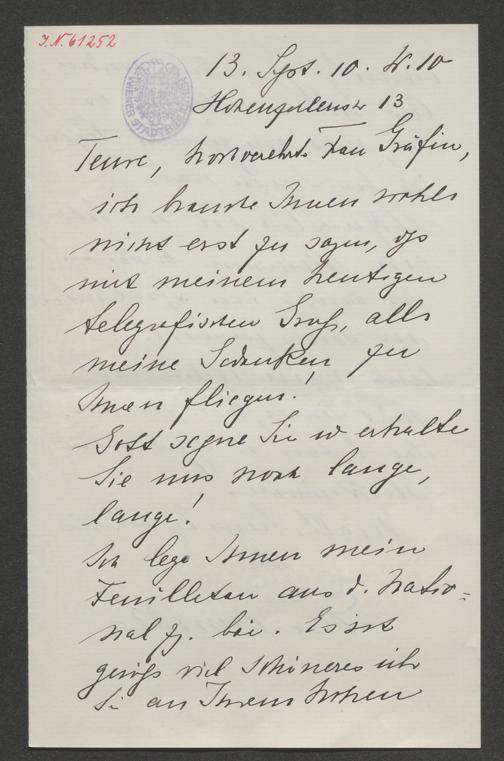 J.N. 61252
WIENER STADTBIBLIOTHEK
13. Spt. 10. W. 10
Hohenzollernstr 13
Teure, hochverehrte Frau Gräfin,
ich brauche Ihnen wohl
nicht erst zu sagen, dß
mit meinem heutigen
telegrafischen Gruß, alle
meine Gedanken zu
Ihnen fliegen!
Gott segne Sie u erhalte
Sie uns noch lange,
lange!
Ich lege Ihnen mein
Feuilleton aus d. Natio=
nal z. bei. Es ist
gewiß viel Schöneres üb
Sie an Ihrem hohen